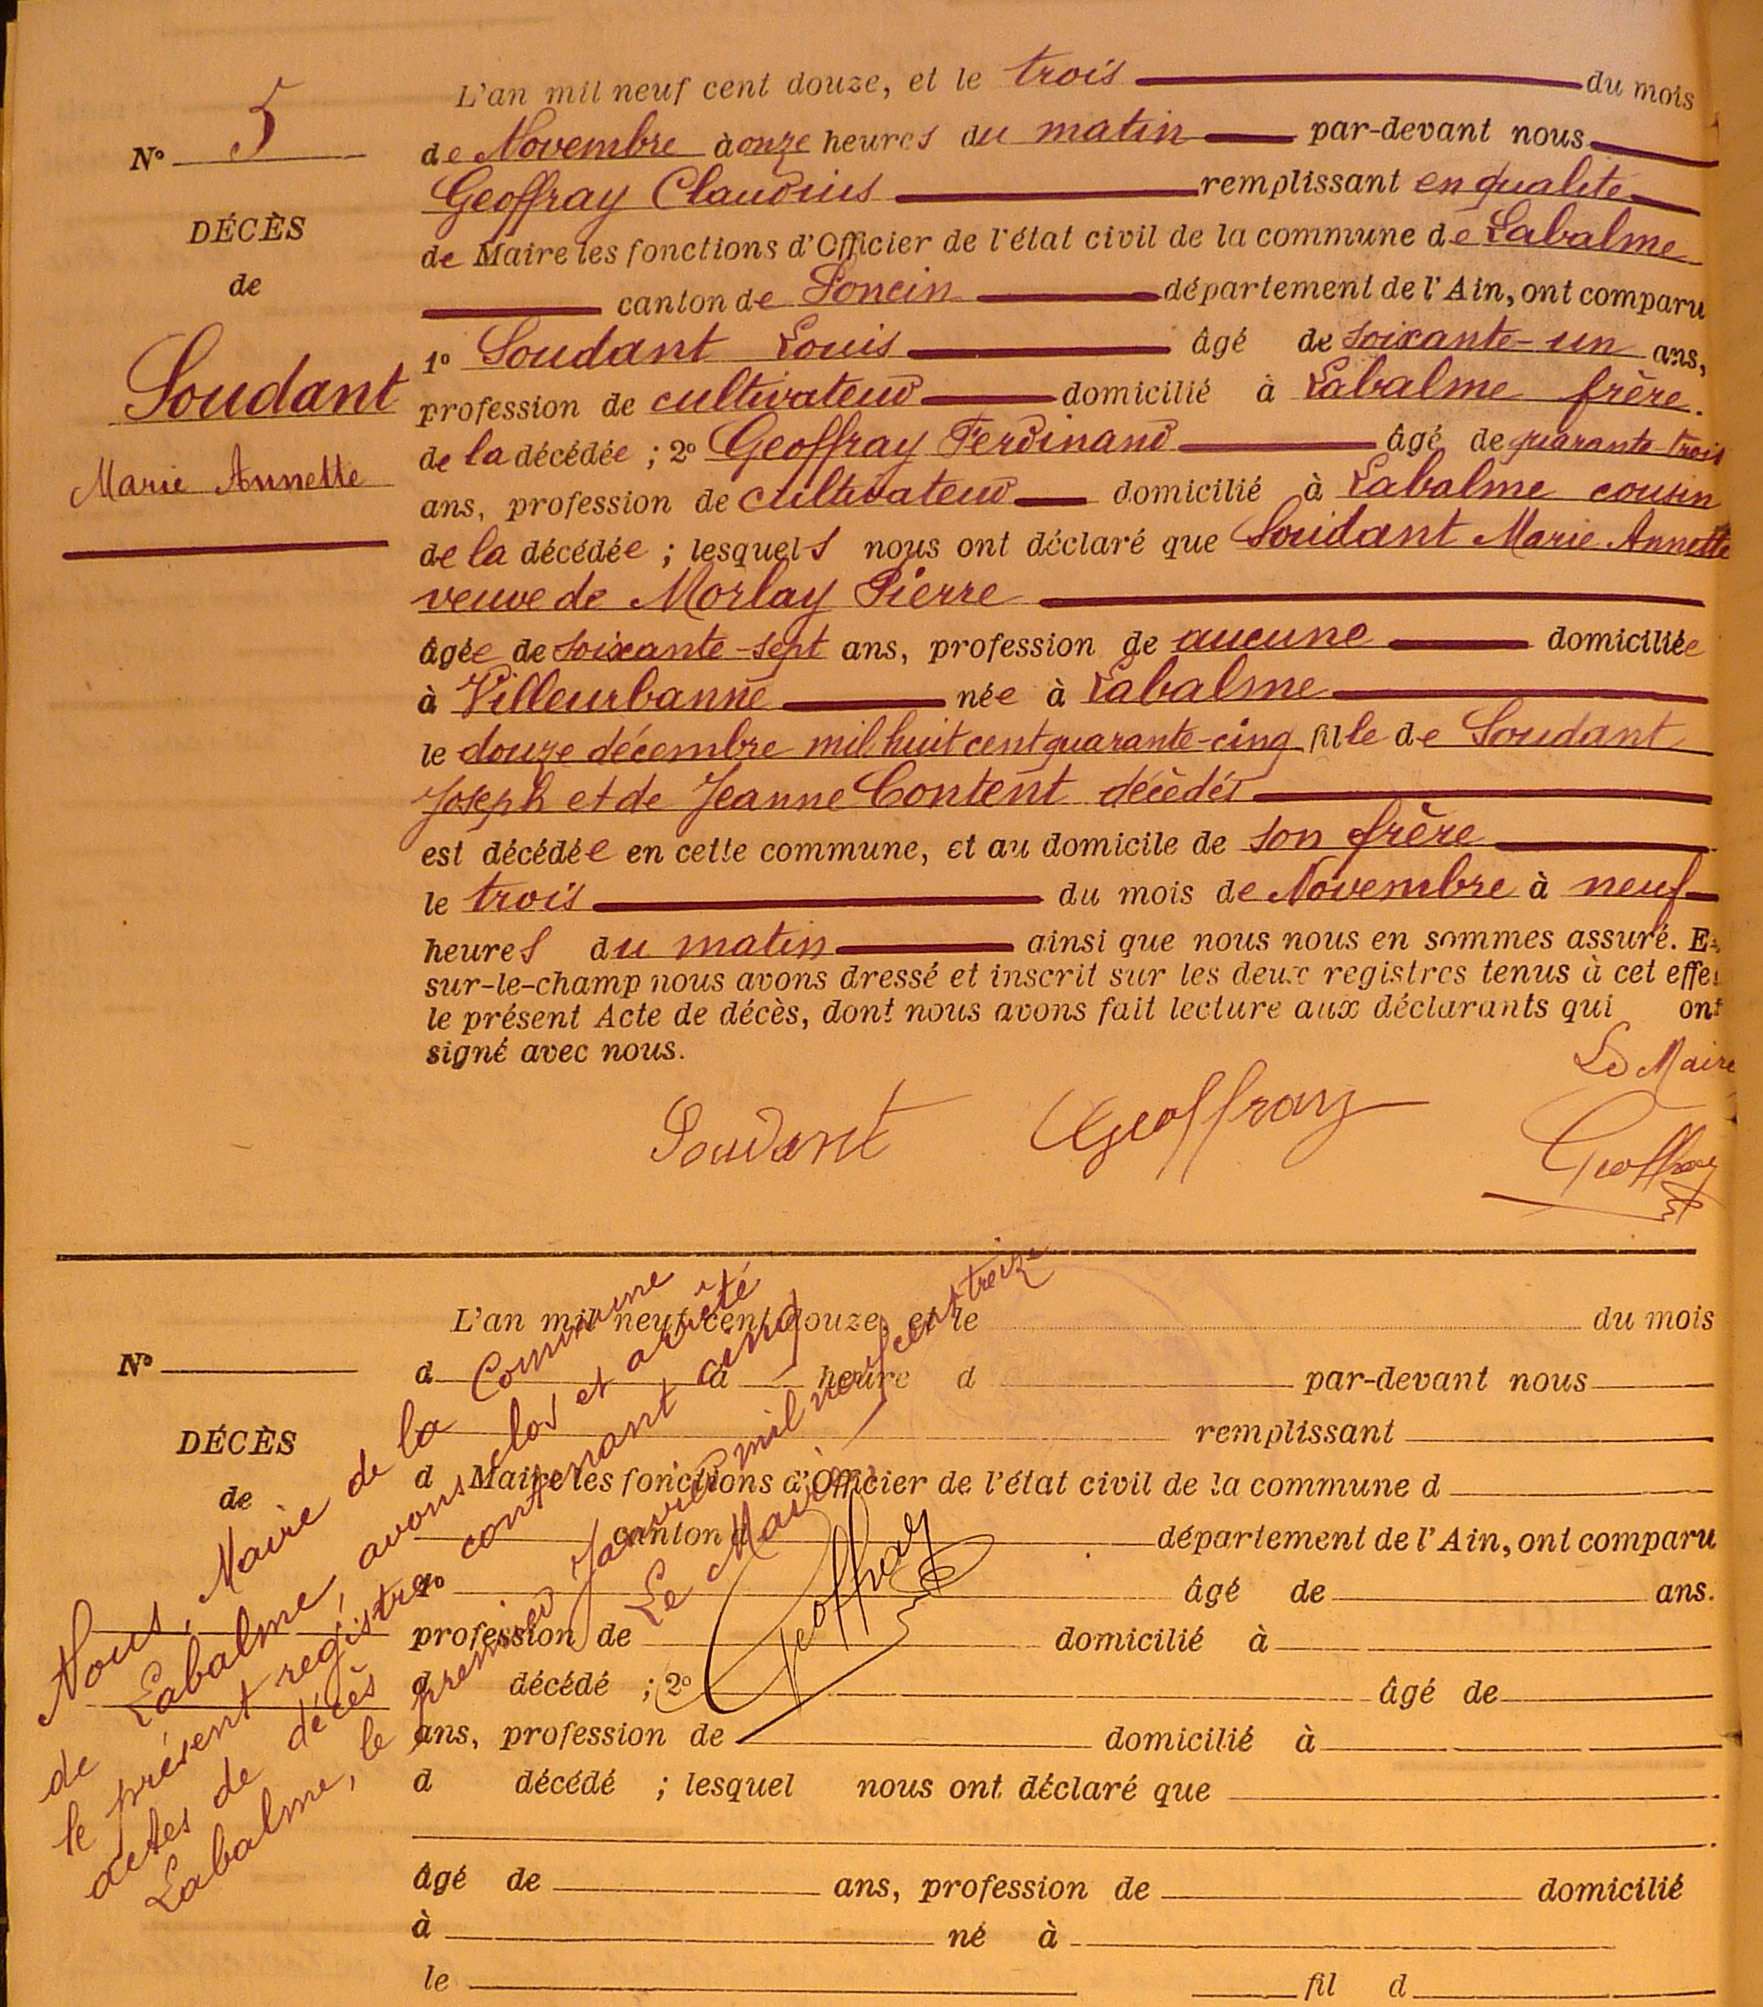 L'an mil neuf cent douze, et le trois du mois
N° 5
de Novembre à onze heures du matin par-devant nous
Geoffray Claudius remplissant en qualité
DÉCÈS
de Maire les fonctions d'Officier de l'état civil de la commune de Labalme
de
canton de Poncin département de l'Ain, ont comparu
1° Soudant Louis âgé de soixante-un ans,
Soudant
profession de cultivateur domicilié à Labalme frère.
de la décédée ; 2° Geoffray Ferdinand âgé de quarante-trois
Marie Annette
ans, profession de cultivateur domicilié à Labalme cousin
de la décédée ; lesquels nous ont déclaré que Soudant Marie Annette
veuve de Morlay Pierre
âgée de soixante-sept ans, profession de aucune domiciliée
à Villeurbanne née à Labalme
le douze décembre mil huit cent quarante-cinq fille de Soudant
Joseph et de Jeanne Content décèdés
est décédée en cette commune, et au domicile de son frère
le trois du mois de Novembre à neuf
heures du matin ainsi que nous nous en sommes assuré. Et
sur-le-champ nous avons dressé et inscrit sur les deux registres tenus à cet effet
le présent Acte de décès, dont nous avons fait lecture aux déclarants qui ont
signé avec nous.
Le Maire
Soudant Geoffray Geoffray
L'an mil neuf cent douze, et le du mois
N°
d à heure d par-devant nous
remplissant
DÉCÈS
d Maire les fonctions d'Officier de l'état civil de la commune d
de
canton d département de l'Ain, ont comparu
1° âgé de ans.
profession de domicilié à
d décédé ; 2° âgé de
ans, profession de domicilié à
d décédé ; lesquel nous ont déclaré que
âgé de ans, profession de domicilié
à né à
le fil d
Nous, Maire de la Commune
de Labalme, avons clos et arrêté
le présent registre contenant cinq
actes de décès
Labalme, le premier Janvier mil neuf cent treize
Le Maire
Geoffray